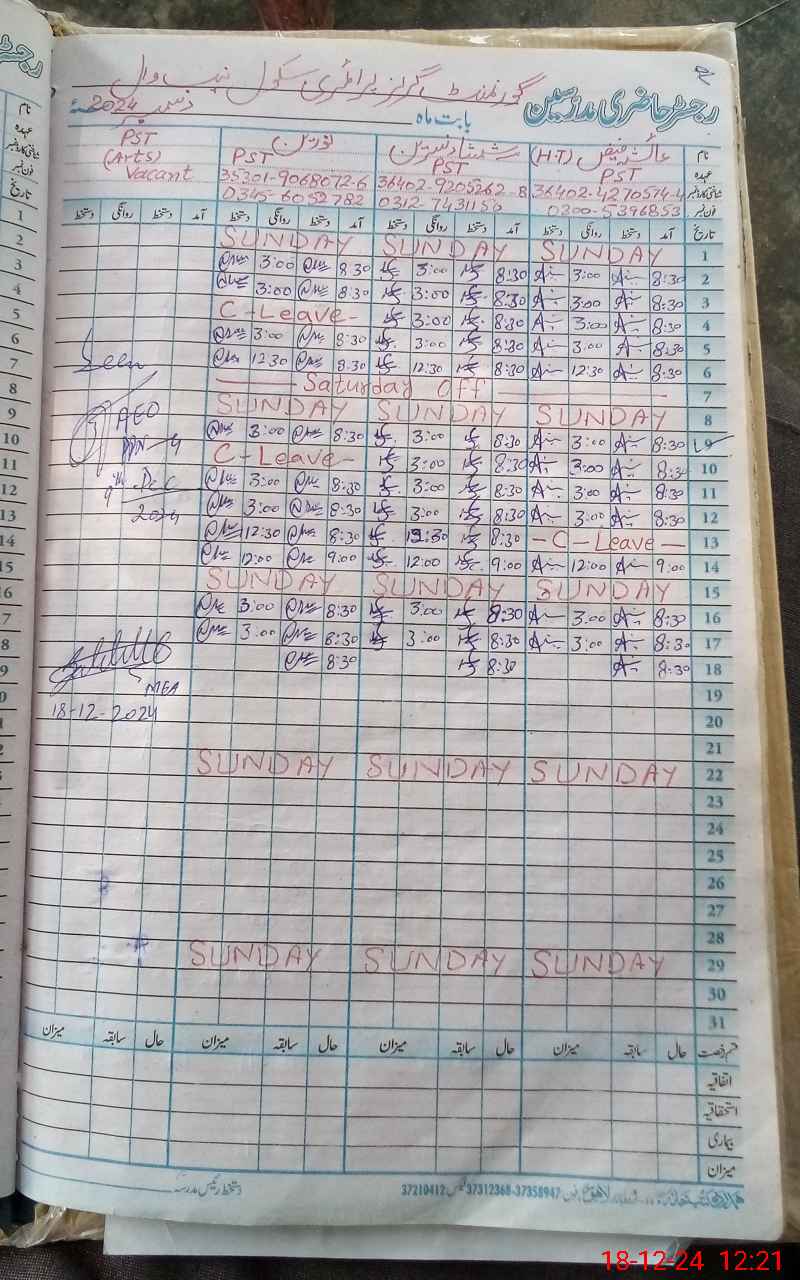 رجسٹر حاضری مدرسین
گورنمنٹ گرلز پرائمری سکول نیب وال
بابت ماہ دسمبر 2024ء
نام
عہدہ
شناختی کارڈ نمبر
فون نمبر
عائشہ فیض (H.T)
PST
36402-4270574-4
0300-5396853
شمشاد نسترین
PST
36402-9205262-8
0312-7431156
نورین
PST
35301-9068072-6
0345-6052782
PST
(Arts)
Vacant
تاریخ آمد دستخط روانگی دستخط آمد دستخط روانگی دستخط آمد دستخط روانگی دستخط آمد دستخط روانگی دستخط
SUNDAY SUNDAY SUNDAY 1
3:00 8:30 3:00 8:30 3:00 8:30 2
3:00 8:30 3:00 8:30 3:00 8:30 3
C-Leave- 3:00 8:30 3:00 8:30 4
3:00 8:30 3:00 8:30 3:00 8:30 5
12:30 8:30 12:30 8:30 12:30 8:30 6
Saturday Off 7
SUNDAY SUNDAY SUNDAY 8
3:00 8:30 3:00 8:30 3:00 8:30 9
C-Leave- 3:00 8:30 3:00 8:30 10
3:00 8:30 3:00 8:30 3:00 8:30 11
3:00 8:30 3:00 8:30 3:00 8:30 12
12:30 8:30 12:30 8:30 -C-Leave- 13
12:00 9:00 12:00 9:00 12:00 9:00 14
SUNDAY SUNDAY SUNDAY 15
3:00 8:30 3:00 8:30 3:00 8:30 16
3:00 8:30 3:00 8:30 3:00 8:30 17
8:30 8:30 8:30 18
19
20
21
SUNDAY SUNDAY SUNDAY 22
23
24
25
26
27
28
SUNDAY SUNDAY SUNDAY 29
30
31
Seen
AEO
9th Dec
2024
MEA
18-12-2024
قسم رخصت حال سابقہ میزان حال سابقہ میزان حال سابقہ میزان حال سابقہ میزان
اتفاقیہ
استحقاقیہ
بیماری
میزان
دستخط رئیس مدرسہ
37312368-37358947 فیکس: 37210412
18-12-24 12:21